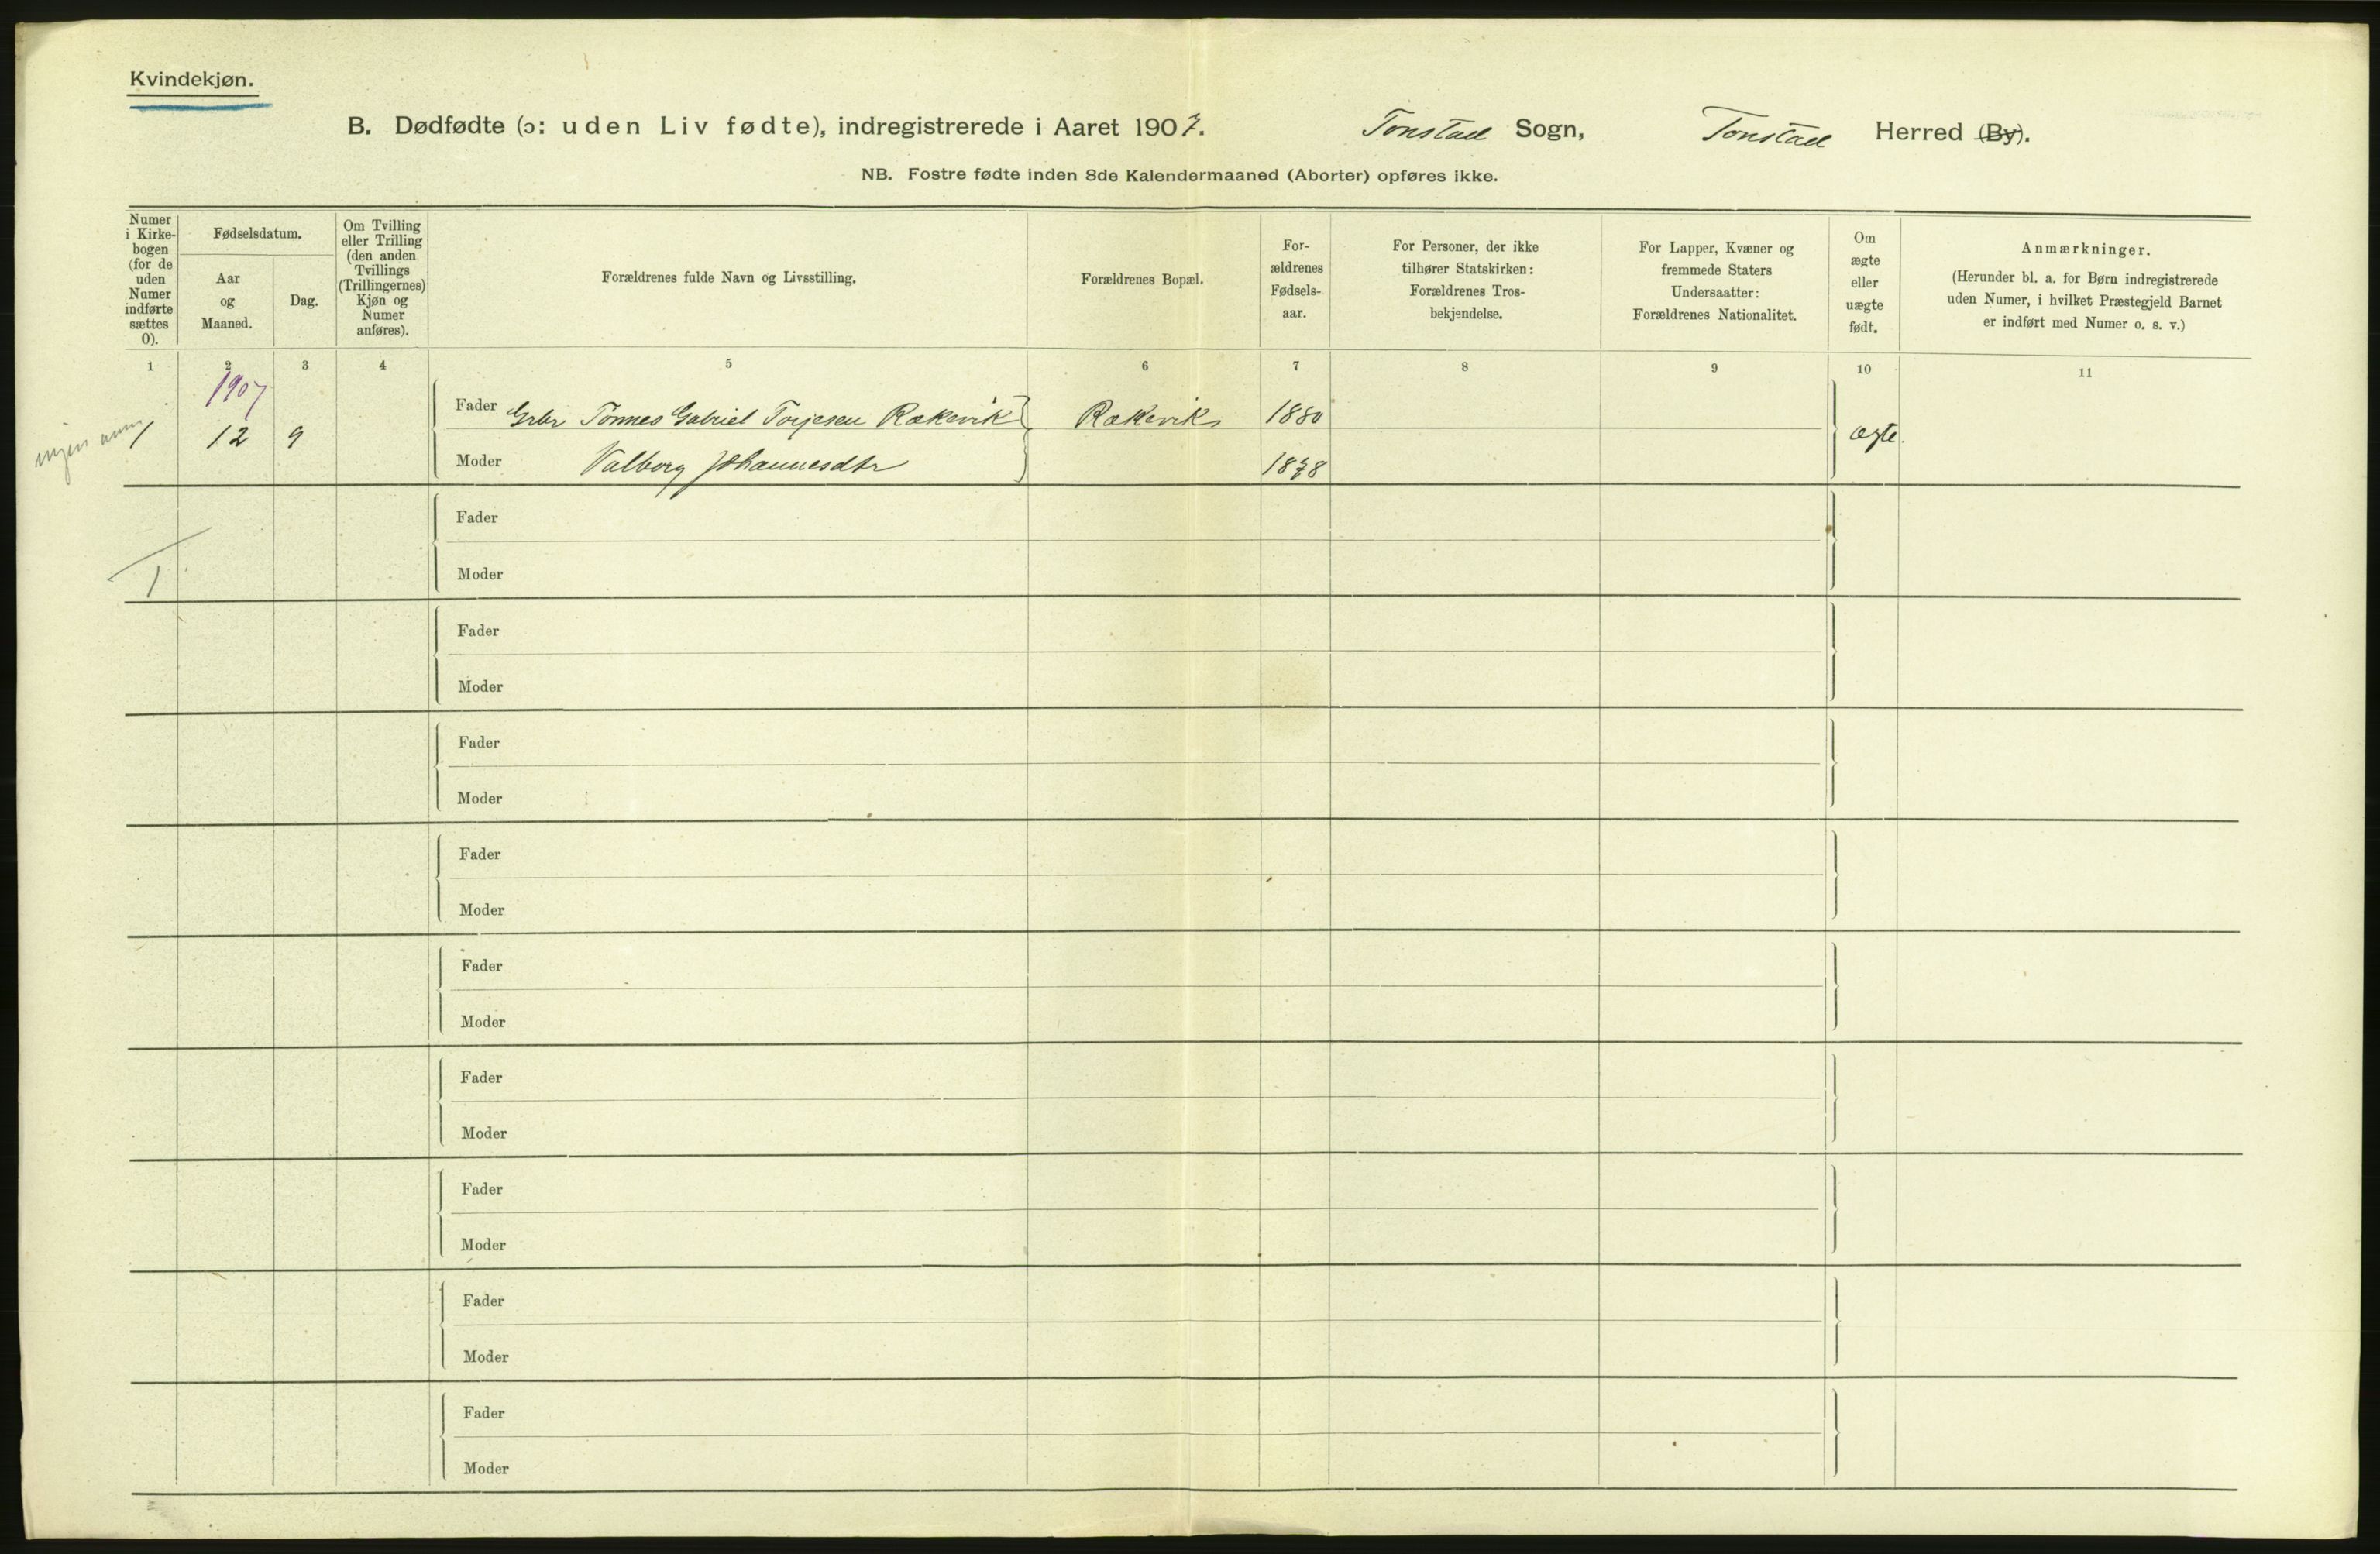 Kvindekjøn.
B. Dødfødte (ɔ: uden Liv fødte), indregistrerede i Aaret 1907. Tonstad Sogn, Tonstad Herred (By).
NB. Fostre fødte inden 8de Kalendermaaned (Aborter) opføres ikke.
Numer
i Kirke-
bogen
(for de
uden
Numer
indførte
sættes
0).
Fødselsdatum.
Aar
og
Maaned.
Dag.
Om Tvilling
eller Trilling
(den anden
Tvillings
(Trillingernes)
Kjøn og
Numer
anføres).
Forældrenes fulde Navn og Livsstilling.
Forældrenes Bopæl.
For-
ældrenes
Fødsels-
aar.
For Personer, der ikke
tilhører Statskirken:
Forældrenes Tros-
bekjendelse.
For Lapper, Kvæner og
fremmede Staters
Undersaatter:
Forældrenes Nationalitet.
Om
ægte
eller
uægte
født.
Anmærkninger.
(Herunder bl. a. for Børn indregistrerede
uden Numer, i hvilket Præstegjeld Barnet
er indført med Numer o. s. v.)
1 2 3 4 5 6 7 8 9 10 11
1907
Fader Grbr Tønnes Gabriel Torjesen Rækevik Rækevik 1880
1 12 9 ægte
Moder Valborg Johannesdtr 1878
Fader
Moder
1
Fader
Moder
Fader
Moder
Fader
Moder
Fader
Moder
Fader
Moder
Fader
Moder
Fader
Moder
Fader
Moder